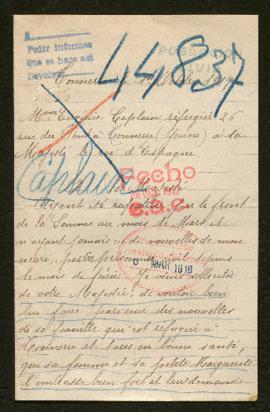 A
Pedir informes
Que se haga est
Devolver
44837
POBLACION
CIVIL
Tonnerre
Mme Eugénie Caplain réfugiée 26
rue du Pont à Tonnerre (Yonne) à la
Majesté le roi d'Espagne
Caplain
Hecho
Majesté
Ayant été rapatriée sur le front
de la Somme au mois de Mars et
n'ayant jamais eu de nouvelles de mon
mari, depuis
le mois de Je viens
de votre Majesté, de vouloir bien
lui faire parvenir des nouvelles
de sa famille qui est réfugiée à
Tonnerre et tous en bonne santé,
que sa femme et sa petite Marguerite
l'embrasse bien fort et leur demande
MAR 1918